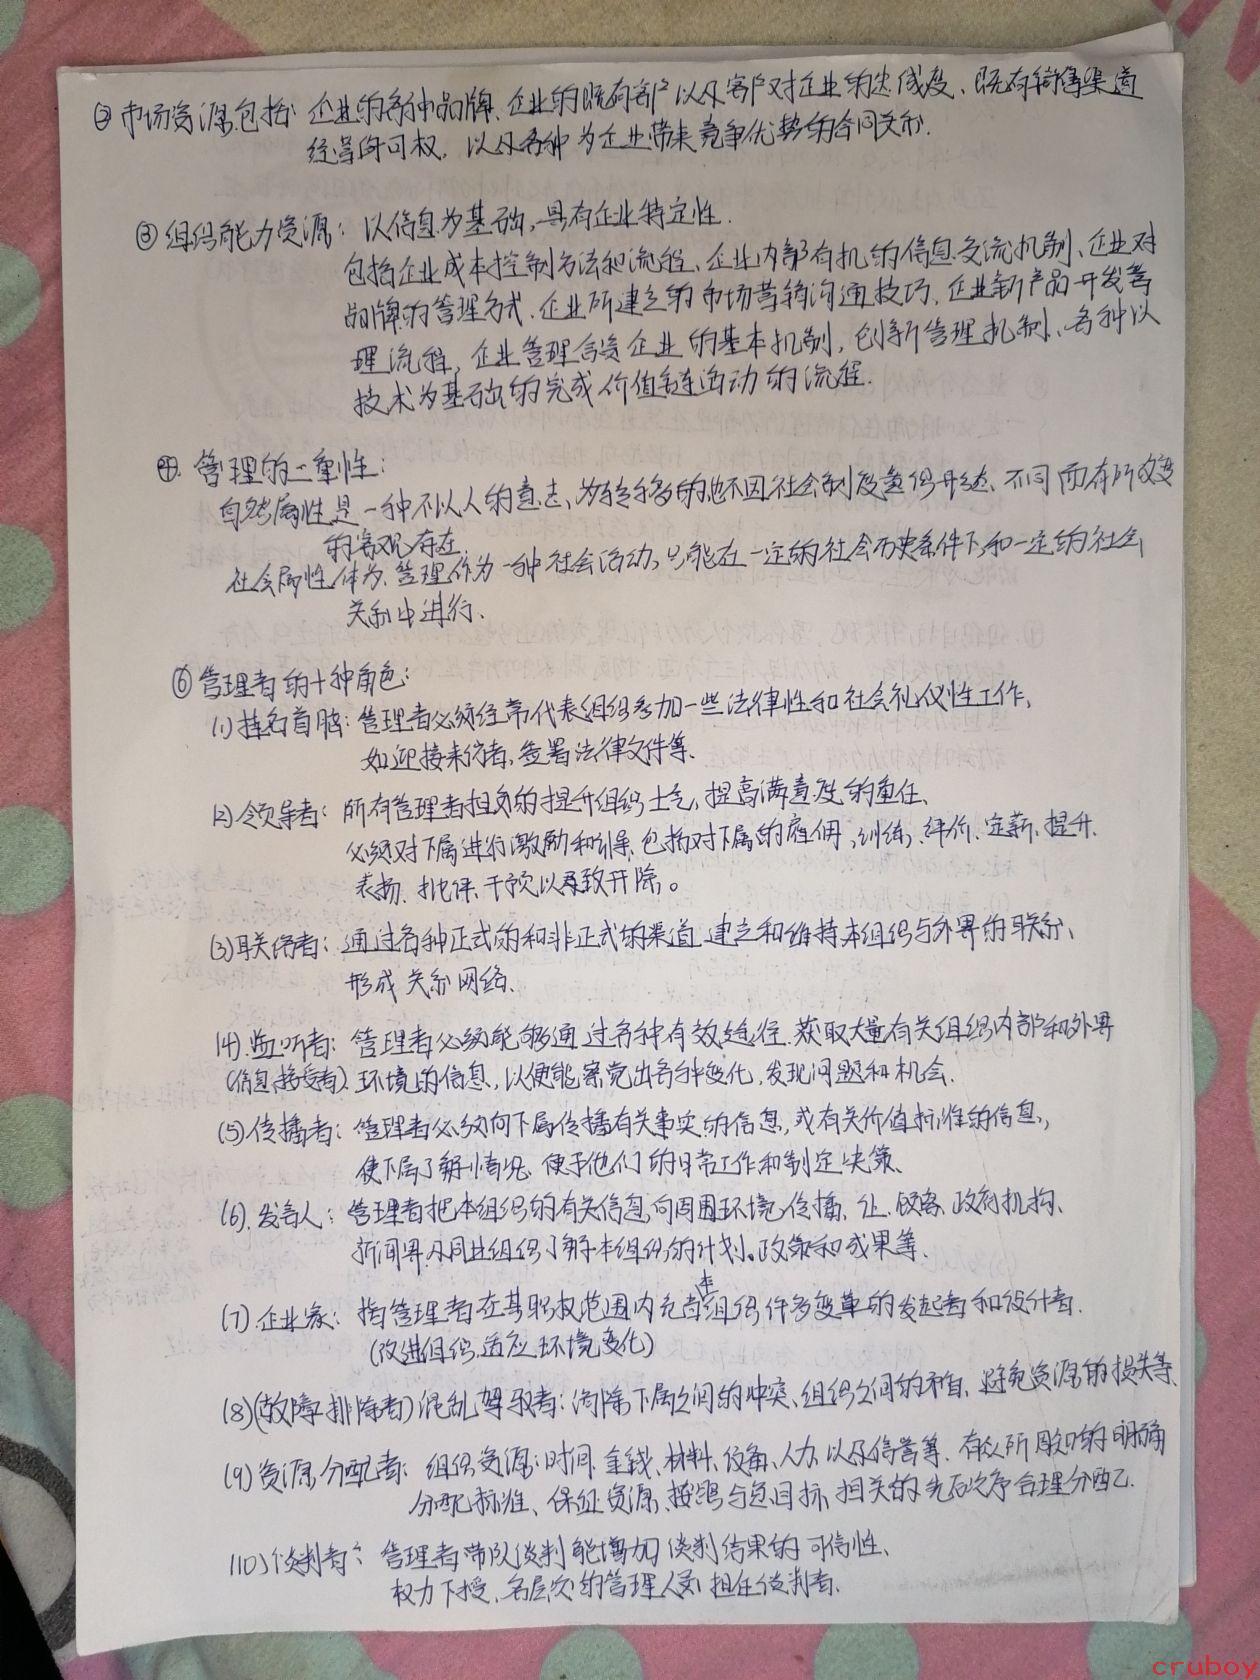 ② 市场资源包括: 企业的各种品牌、企业的既有客户以及客户对企业的忠诚度、既有销售渠道
经营许可权, 以及各种为企业带来竞争优势的合同关系.
③ 组织能力资源: 以信息为基础, 具有企业特定性.
包括企业成本控制方法和流程、企业内部有机的信息交流机制、企业对
品牌的管理方式、企业所建立的市场营销沟通技巧、企业新产品开发管
理流程, 企业管理合资企业的基本机制, 创新管理机制、各种以
技术为基础的完成价值链活动的流程.
四. 管理的二重性:
自然属性是一种不以人的意志、为转移的也不因社会制度组织形态、不同而有所改变
的客观存在
社会属性体为、管理作为一种社会活动, 只能在一定的社会历史条件下和一定的社会
关系中进行.
⑥ 管理者的十种角色:
(1) 挂名首脑: 管理者必须经常代表组织参加一些法律性和社会礼仪性工作,
如迎接来访者, 签署法律文件等.
(2) 领导者: 所有管理者担负的提升组织士气, 提高满意度的重任、
必须对下属进行激励和引导、包括对下属的雇佣、训练、评价、定薪、提升、
表扬、批评、干预以及致开除。
(3) 联络者: 通过各种正式的和非正式的渠道 建立和维持本组织与外界的联系、
形成关系网络.
(4). 监听者: 管理者必须能够通过各种有效途径、获取大量有关组织内部和外界
(信息接受者). 环境的信息, 以便能察觉出各种变化, 发现问题和机会.
(5) 传播者: 管理者必须向下属传播有关事实的信息, 或有关价值标准的信息,
使下属了解情况、便于他们的日常工作和制定决策、
(6). 发言人: 管理者把本组织的有关信息向周围环境传播、让、顾客、政府机构、
新闻界及同业组织了解本组织的计划。政策和成果等.
(7). 企业家: 指管理者在其职权范围内充当本组织许多变革的发起者和设计者.
(改进组织、适应环境变化)
(8) (故障排除者) 混乱驾驭者: 消除下属之间的冲突、组织之间的矛盾、避免资源的损失等、
(9) 资源分配者: 组织资源: 时间、金钱、材料、设备、人力以及信誉等. 有众所周知的明确
分配标准、保证资源、按照与总目标相关的先后次序合理分配.
(10) 谈判者: 管理者带队谈判能增加谈判结果的可信性、
权力下授、各层次的管理人员担任谈判者.
cruboy